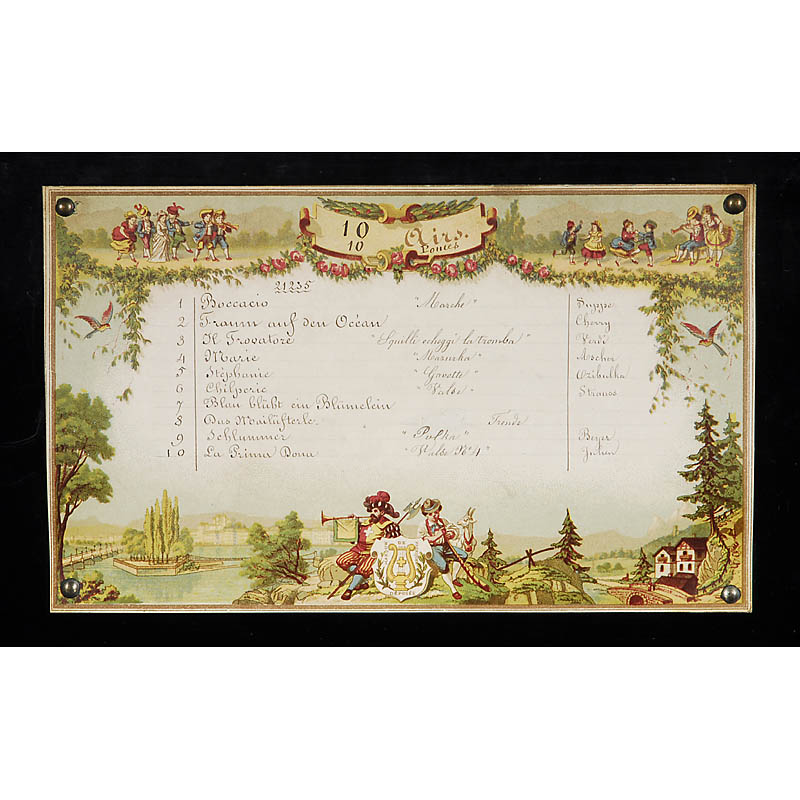 10 Airs.
10 Pouces
21235
1 Boccacio "Marche" Suppe
2 Traum auf den Océan Cherry
3 Il Trovatore "Squille echeggi la tromba" Verdi
4 Marie "Mazurka" Ascher
5 Stéphanie "Gavotte" Czibulka
6 Chilperic "Valse" Strauss
7 Blau blüht ein Blümelein
8 Das Mailüfterle
9 Schlummer "Polka" Beyer
10 La Prima Dona "Valse No 4" Julien
DÉPOSÉE